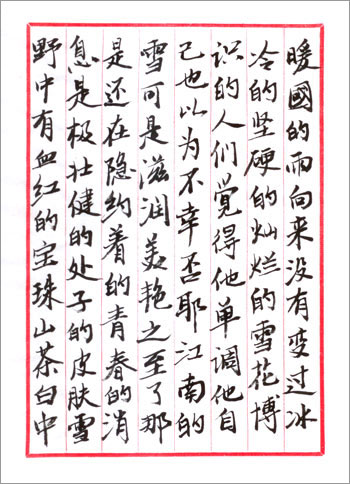 暖國的雨向来没有变过冰
冷的坚硬的灿烂的雪花博
识的人们觉得他单调他自
己也以为不幸否耶江南的
雪可是滋润美艳之至了那
是还在隐约着的青春的消
息是极壮健的处子的皮肤雪
野中有血红的宝珠山茶白中